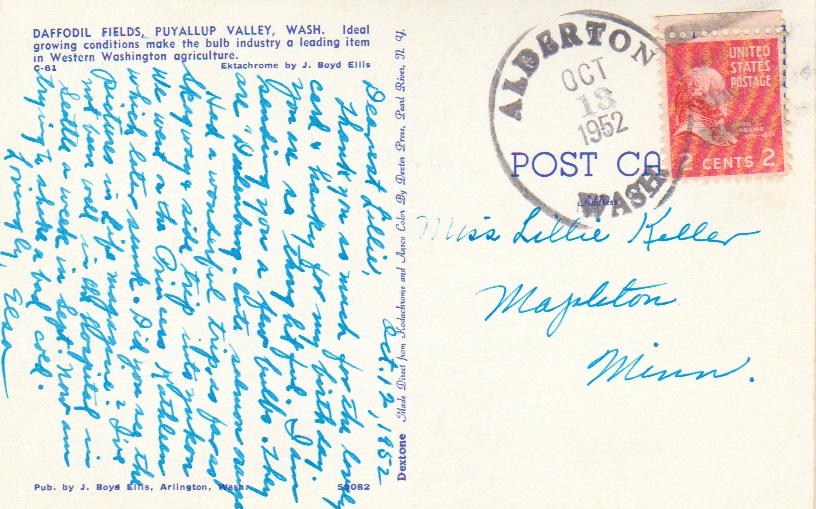 DAFFODIL FIELDS, PUYALLUP VALLEY, WASH. Ideal
growing conditions make the bulb industry a leading item
in Western Washington agriculture.
C-61
Ektachrome by J. Boyd Ellis
Oct. 12, 1952
Dearest Lillie,
Thank you so much for the lovely
card & hanky for my birthday.
You are so thoughtful. I am
sending you a few bulbs. They
are "Daleking. cote salmon orange
Had a wonderful trip as far as
Skagway & side trip into Yukon
We went on the Princess Kathleen
which later sunk. Did you see the
pictures in Life magazine? I've
not been well in Hospital in
Seattle a week in Sept. Now am
trying to shake a bad cold.
Lovingly,
Elsa
Pub. by J. Boyd Ellis, Arlington, Wash.
59082
Dextone
Made Direct from Kodachrome and Ansco Color By Dexter Press, Pearl River, N. Y.
ALDERTON
OCT
13
1952
WASH.
UNITED
STATES
POSTAGE
JOHN
ADAMS
2 CENTS 2
POST CA
Address
Miss Lillie Keller
Mapleton
Minn.